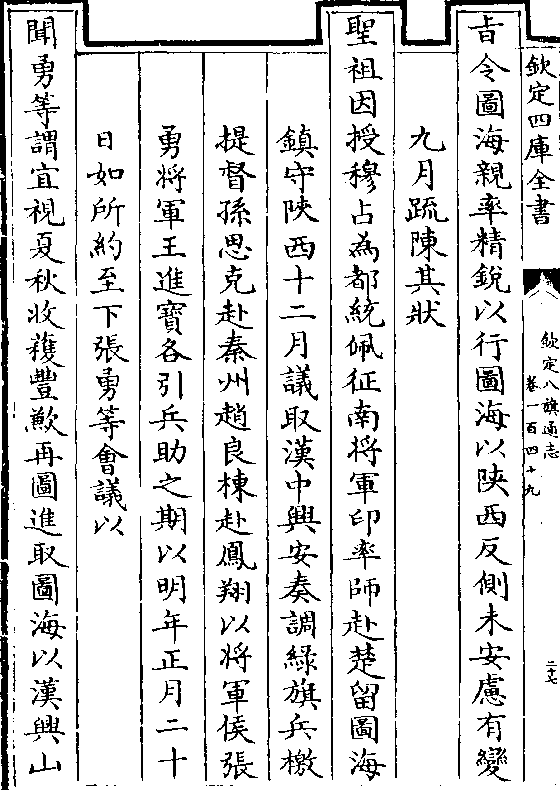 欽定四庫全書
欽定八旗通志
卷一百四十九
二十七
旨令圖海親率精銳以行圖海以陝西反側未安慮有變
九月疏陳其狀
聖祖因授穆占為都統佩征南將軍印率師赴楚留圖海
鎮守陝西十二月議取漢中興安奏調綠旗兵檄
提督孫思克赴秦州趙良棟赴鳳翔以將軍侯張
勇將軍王進寶各引兵助之期以明年正月二十
日如所約至下張勇等會議以
聞勇等謂宜視夏秋收穫豐歉再圖進取圖海以漢興山